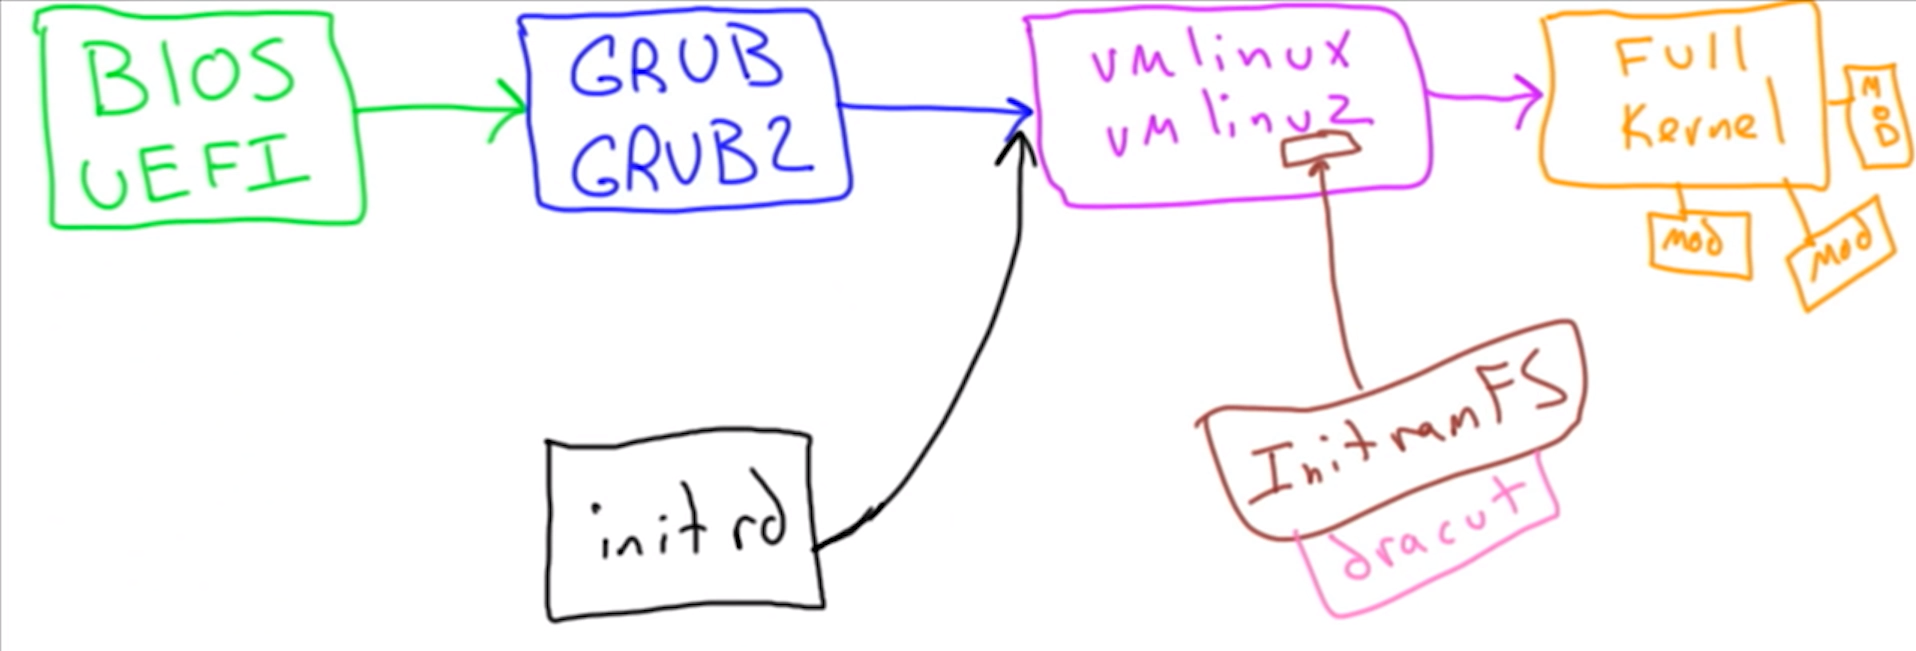 BIOS
UEFI
GRUB
GRUB2
vmlinux
vmlinuz
Full
Kernel
MOD
mod
mod
initrd
InitramFS
dracut